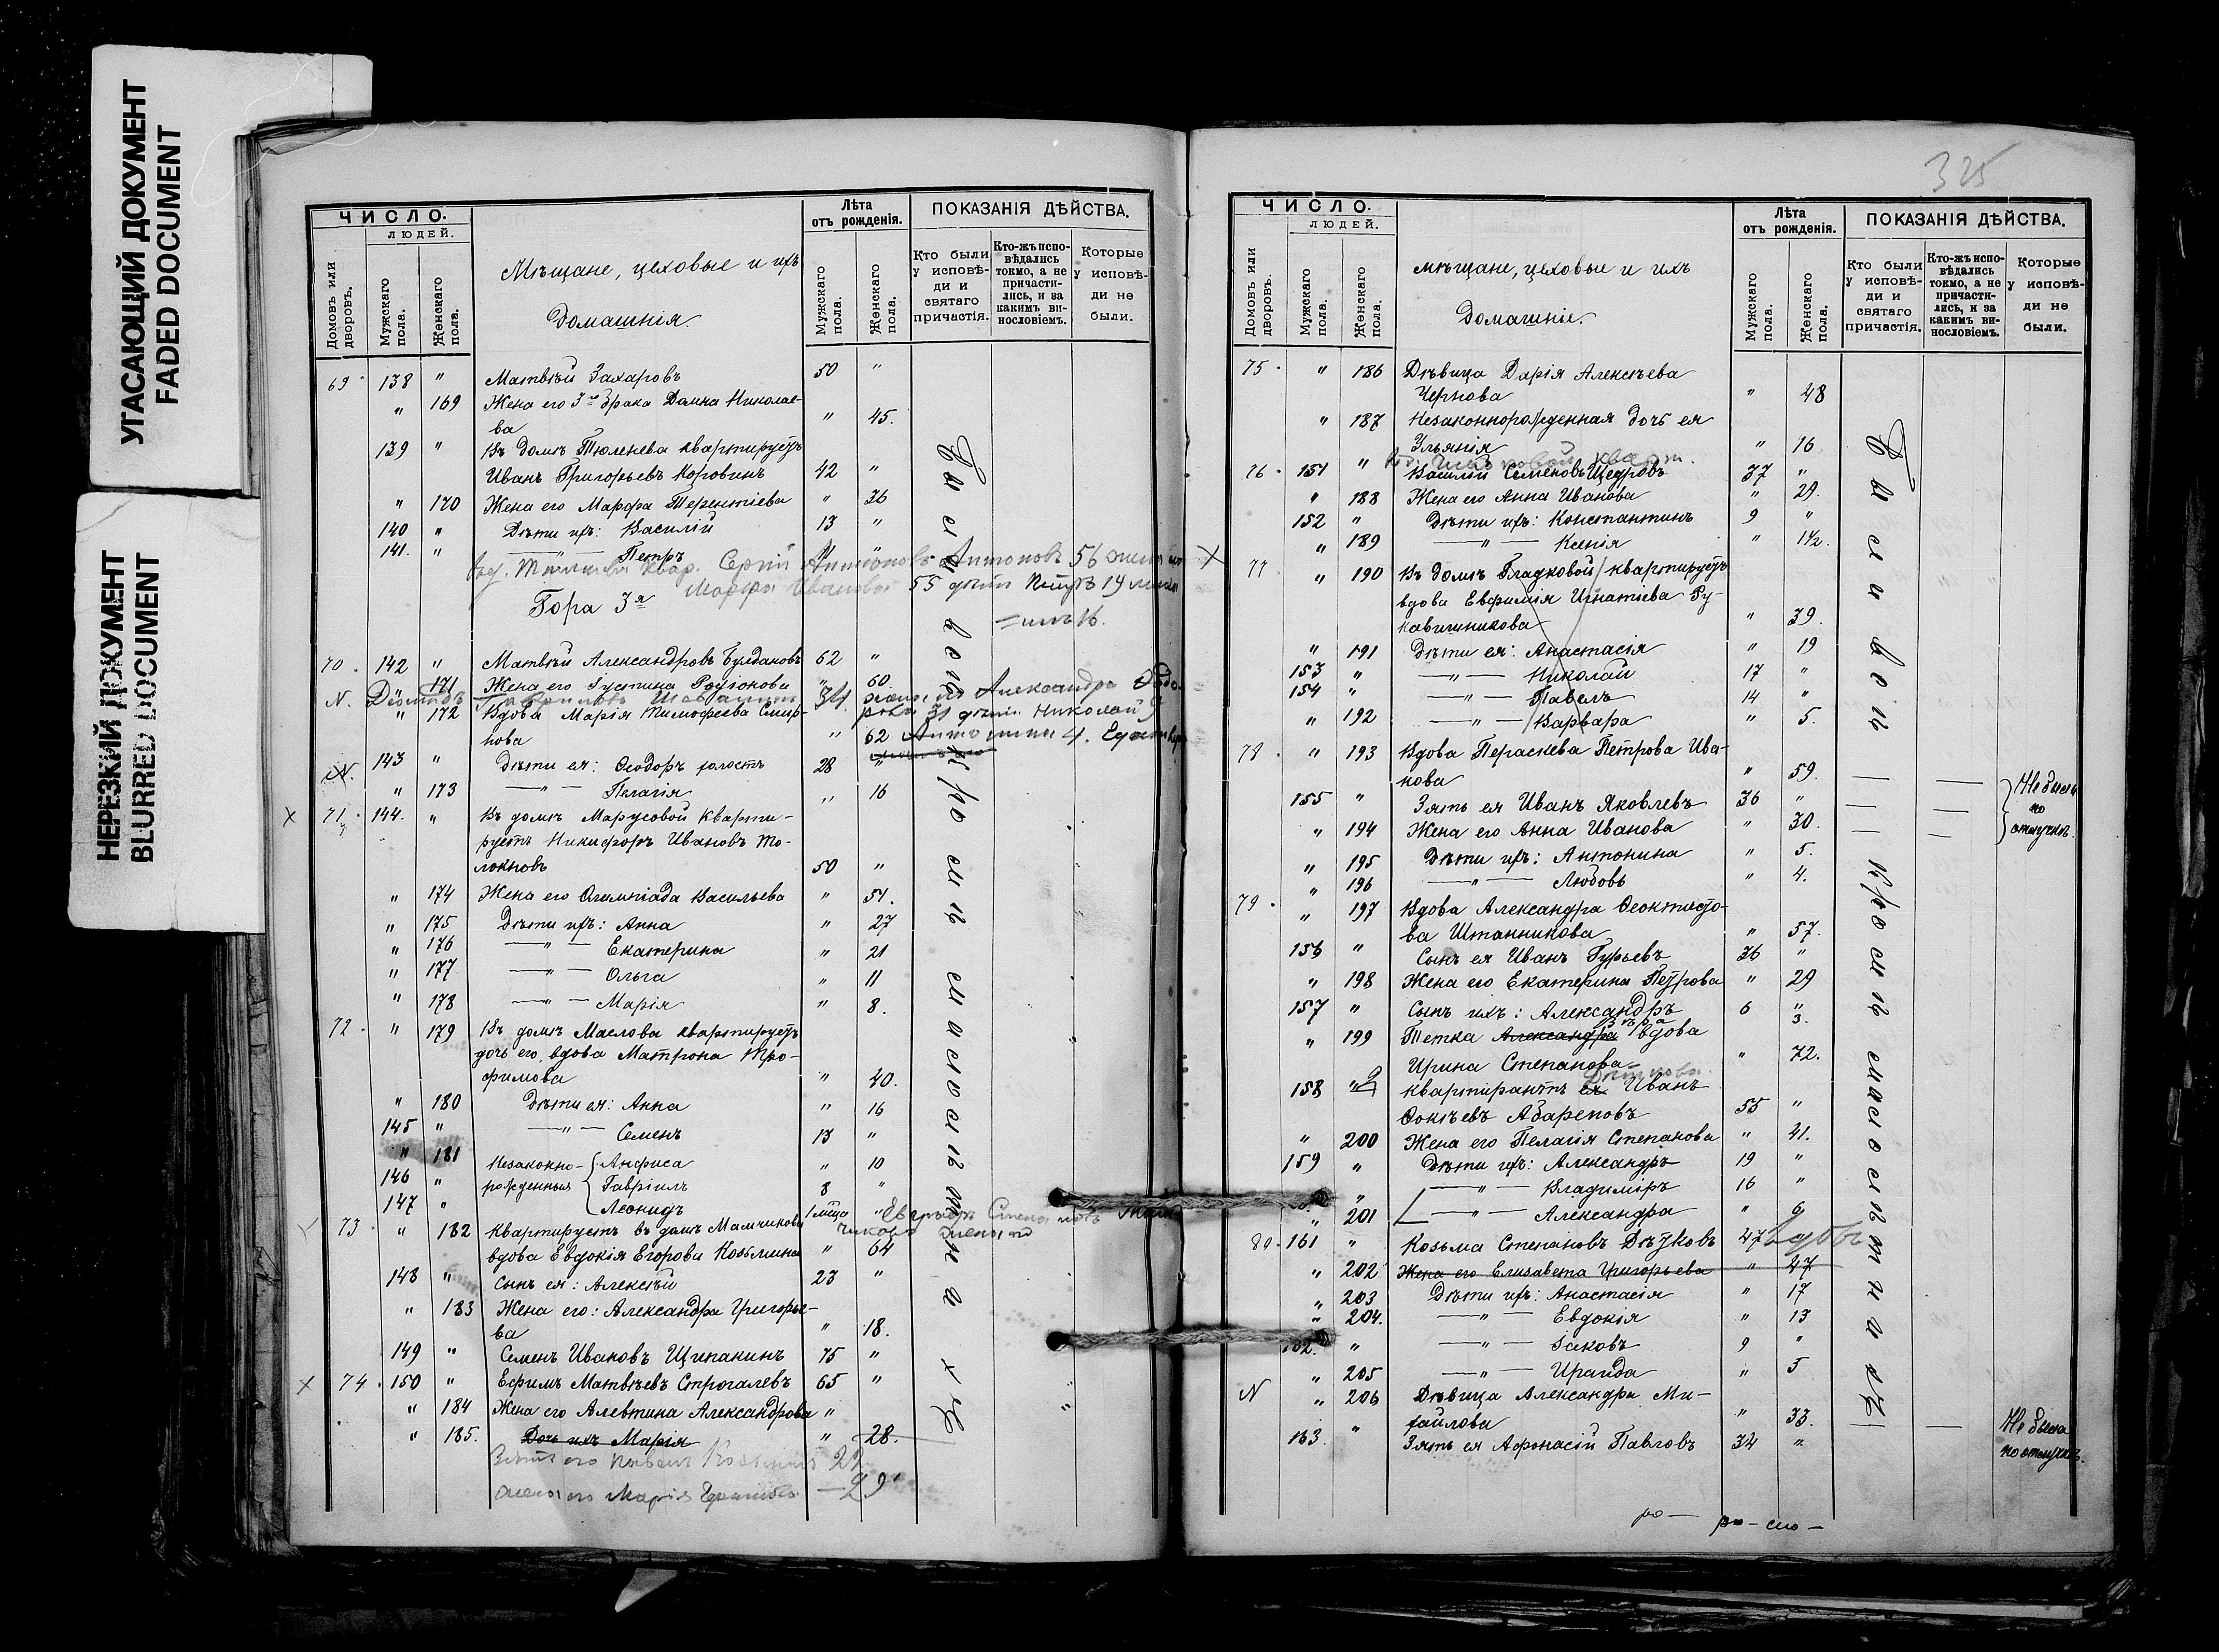 УГАСАЮЩИЙ ДОКУМЕНТ
FADED DOCUMENT
НЕРЕЗКИЙ ДОКУМЕНТ
BLURRED DOCUMENT
ЧИСЛО.
ЛЮДЕЙ.
Домовъ или дворовъ.
Мужскаго пола.
Женскаго пола.
Мѣщане, цеховые и ихъ
домашнія.
Лѣта
отъ рожденія.
Мужскаго пола.
Женскаго пола.
ПОКАЗАНІЯ ДѢЙСТВА.
Кто были у исповѣди и святаго причастія.
Кто-жъ исповѣдались токмо, а не причастились, и за какимъ винословіемъ.
Которые у исповѣди не были.
69 138 " Матвѣй Захаровъ 50 "
" 169 Жена его 3го брака Домна Николае-
ва " 45.
139 " Въ домѣ Тюленева квартируетъ
Иванъ Григорьевъ Коровинъ 42 "
" 170 Жена его Марфа Терентіева " 36
140 " Дѣти ихъ: Василій 13 "
141. " —"— Петръ
квар. Сергій Антоновъ Антоновъ 56 жена
Марфа Иванова 55 дѣти Петръ 19
Гора 3я
16.
70. 142 " Матвѣй Александровъ Булдаковъ 62 "
" 171 Жена его Іустина Родіонова " 60.
N. 34 жена его Александра Ѳедо-
" 172 Вдова Марія Тимофеева Смир-
рова 31 дѣти Николай 9
нова " 62 Антонина 4.
143 " Дѣти ея: Ѳеодоръ холостъ 28 "
N.
" 173 —"— Пелагія " 16
71. 144. " Въ домѣ Марусовой кварти-
руетъ Никифоръ Ивановъ То-
локновъ 50 "
" 174 Жена его Олимпіада Васильева " 51.
" 175 Дѣти ихъ: Анна " 27
" 176 —"— Екатерина " 21
" 177 —"— Ольга " 11
" 178 —"— Марія " 8.
72. " 179 Въ домѣ Маслова квартируетъ
дочь его, вдова Матрона Тро-
фимова " 40.
" 180 Дѣти ея: Анна " 16
145 " —"— Семенъ 13 "
" 181 Незаконно- Анфиса " 10
146 " рожденныя Гавріилъ 8 "
147 " Леонидъ 1 мѣсца "
73. " 182 Квартируетъ въ домѣ Мамчикова
вдова Евдокія Егорова Козьмина " 64
148 " Сынъ ея: Алексѣй 23 "
" 183 Жена его: Александра Григорье-
ва " 18.
149 " Семенъ Ивановъ Щипанинъ 75 "
74. 150 " Ефимъ Матвѣевъ Строгалевъ 65 "
" 184 Жена его Алевтина Александрова "
" 185. Дочь ихъ Марія " 28.
Зять его Козьминъ 22
жена его Марія Ефимова — 29
Вы сиво иро съ масоситниахъ
325
ЧИСЛО.
ЛЮДЕЙ.
Домовъ или дворовъ.
Мужскаго пола.
Женскаго пола.
мѣщане, цеховые и ихъ
домашніе.
Лѣта
отъ рожденія.
Мужскаго пола.
Женскаго пола.
ПОКАЗАНІЯ ДѢЙСТВА.
Кто были у исповѣди и святаго причастія.
Кто-жъ исповѣдались токмо, а не причастились, и за какимъ винословіемъ.
Которые у исповѣди не были.
75. " 186 Дѣвица Дарія Алексѣева
Чернова " 48
" 187 Незаконнорожденная дочь ея
Ульянія " 16
76. 151 " Василій Семеновъ Щедровъ 37 "
" 188 Жена его Анна Иванова " 29.
152 " Дѣти ихъ: Константинъ 9 "
" 189 —"— Ксенія " 1½.
77 " 190 Въ домѣ Гладковой квартируетъ
вдова Евфимія Игнатіева Ру-
кавишникова " 39.
" 191 Дѣти ея: Анастасія " 19
153 " —"— Николай 17 "
154 " —"— Павелъ 14 "
" 192 —"— Варвара " 5.
78. " 193 Вдова Параскева Петрова Ива-
нова " 59.
155 " Зять ея Иванъ Яковлевъ 36 "
" 194 Жена его Анна Иванова " 30.
Не были
по
отлучкѣ.
" 195 Дѣти ихъ: Антонина " 5.
" 196 —"— Любовь " 4.
79. " 197 Вдова Александра Ѳеоктисто-
ва Штанникова " 57.
156 " Сынъ ея Иванъ Гурьевъ 36 "
" 198 Жена его Екатерина Петрова " 29
157 " Сынъ ихъ: Александръ 6 "
3.
" 199 Тетка Александра вдова
Ирина Степанова " 72.
158 " квартирантъ ея Иванъ
Ѳокѣевъ Абарѣновъ 55 "
" 200 Жена его Пелагія Степанова " 41.
159 " Дѣти ихъ: Александръ 19 "
" —"— Владиміръ 16 "
" 201 —"— Александра " 9
80. 161 " Козьма Степановъ Дѣтковъ 47 вдовъ
" 202 Жена его Елизавета Григорьева " 47
" 203 Дѣти ихъ: Анастасія " 17
" 204. —"— Евдокія " 13
162. " —"— Іаковъ 9 "
" 205 —"— Ираида " 5
N " 206 Дѣвица Александра Ми-
хайлова " 33.
163. " Зять ея Афонасій Павловъ 34 "
Не были
по отлучкѣ.
ро— ро— сто—